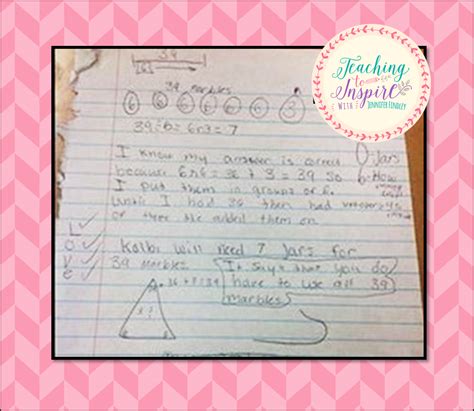 Teaching
to
Inspire
WITH JENNIFER FINDLEY
39
6
39 marbles
6 6 6 6 6 6 3
39÷6= 6r3=7
I know my answer is correct
because 6x6=36+3=39 so
I put them in groups of 6.
until I had 36 then had
or three the added them on
Jars
6: How
L
O
V
E
Kolbi will need 7 Jars for
39 marbles
It says that you do
have to use all 39
marbles
36+?=39
x ?